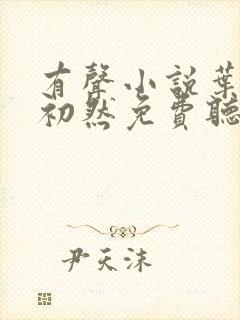 有聲小說葉
初然免費聽
尹天沫